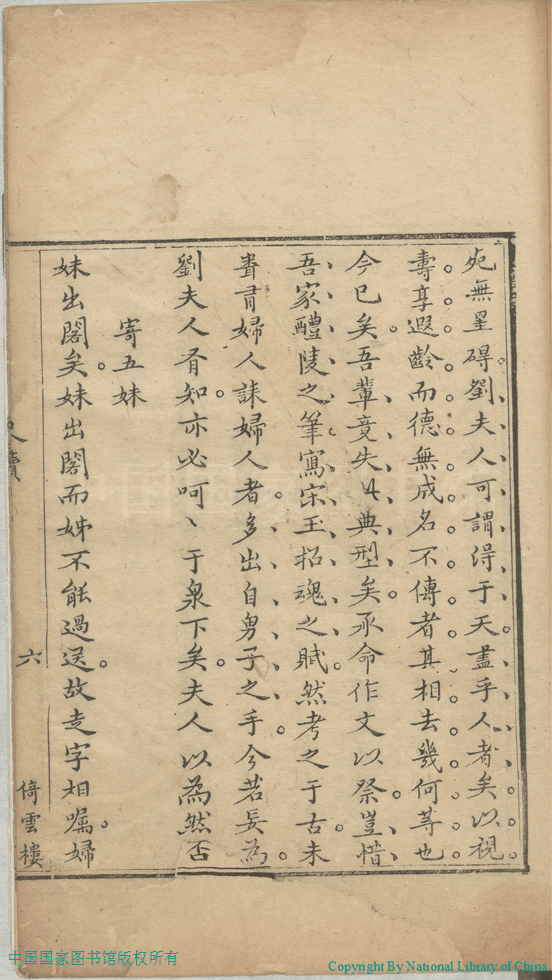 宛無罣碍劉夫人可謂得于天盡乎人者矣以視
壽享遐齡而德無成名不傳者其相去幾何等也
今已矣吾輩竟失此典型矣承命作文以祭豈惜
吾家醴陵之筆寫宋玉招魂之賦然考之于古未
嘗有婦人誄婦人者多出自男子之手今若長為
劉夫人有知亦必呵丶于泉下矣夫人以為然否
寄五妹
妹出閣矣妹出閣而姊不能過送故走字相囑婦
六
倚雲樓
中国国家图书馆版权所有
Copyright By National Library of China